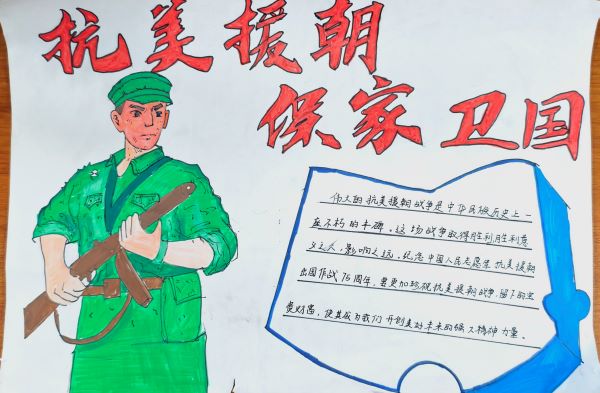 抗美援朝
保家卫国
伟大的抗美援朝战争是中华民族历史上一
座不朽的丰碑。这场战争取得胜利胜利意
义之大，影响之远。纪念中国人民志愿军抗美援朝
出国作战75周年，要更加珍视抗美援朝战争留下的宝
贵财富，使其成为我们开创美好未来的强大精神力量。